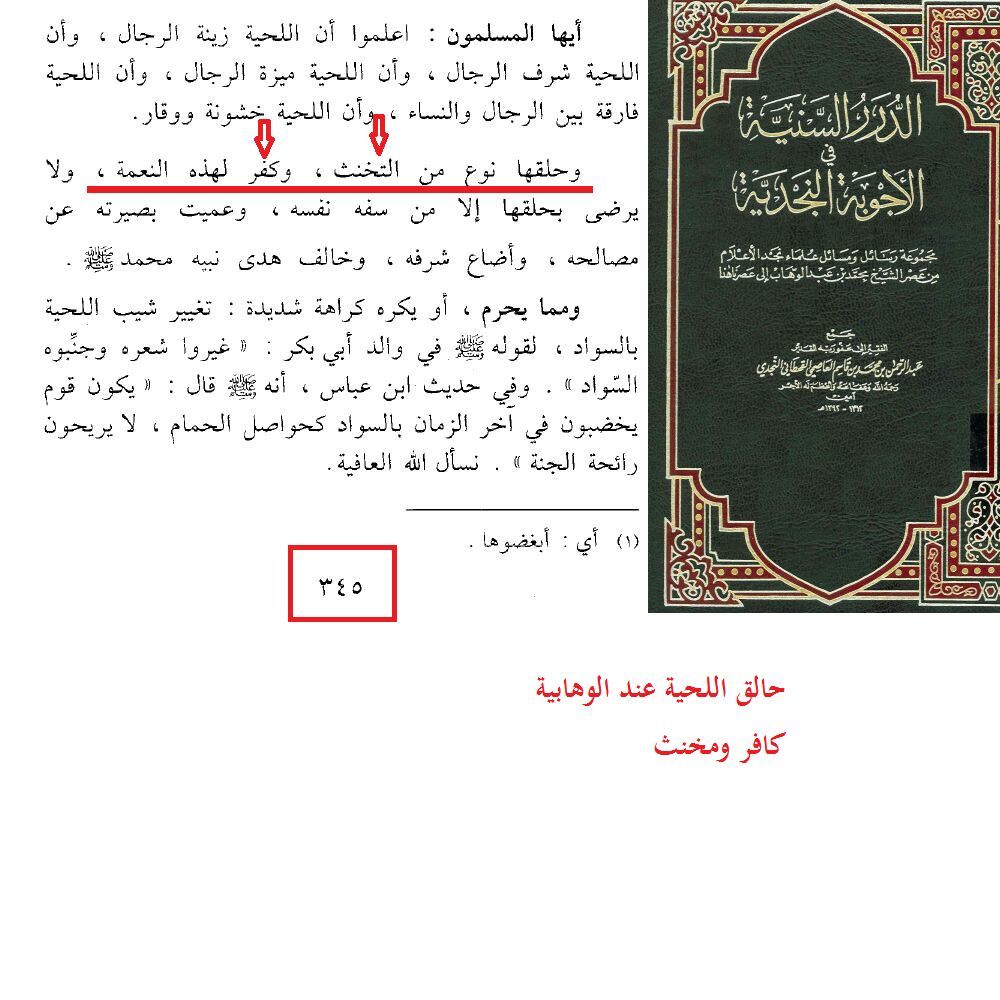 أيها المسلمون : اعلموا أن اللحية زينة الرجال ، وأن
اللحية شرف الرجال ، وأن اللحية ميزة الرجال ، وأن اللحية
فارقة بين الرجال والنساء ، وأن اللحية خشونة ووقار.
وحلقها نوع من التخنث ، وكفر لهذه النعمة ، ولا
يرضى بحلقها إلا من سفه نفسه ، وعميت بصيرته عن
مصالحه ، وأضاع شرفه ، وخالف هدى نبيه محمد ﷺ .
ومما يحرم ، أو يكره كراهة شديدة : تغيير شيب اللحية
بالسواد ، لقوله ﷺ في والد أبي بكر : « غيروا شعره وجنِّبوه
السّواد » . وفي حديث ابن عباس ، أنه ﷺ قال : « يكون قوم
يخضبون في آخر الزمان بالسواد كحواصل الحمام ، لا يريحون
رائحة الجنة » . نسأل الله العافية.
(١) أي : أبغضوها .
٣٤٥
الدُّرَرُ السَّنِيَّة
في
الأَجْوِبَة النَّجْدِيَّة
مجموعة رسائل ومسائل علماء نجد الأعلام
من عصر الشيخ محمد بن عبد الوهاب إلى عصرنا هذا
جمع
الفقير إلى عفو ربه القدير
عبد الرحمن بن محمد بن قاسم العاصمي القحطاني النجدي
رحمه الله وعفا عنه وأعظم له الأجر
آمين
١٣١٢ - ١٣٩٢هـ
حالق اللحية عند الوهابية
كافر ومخنث